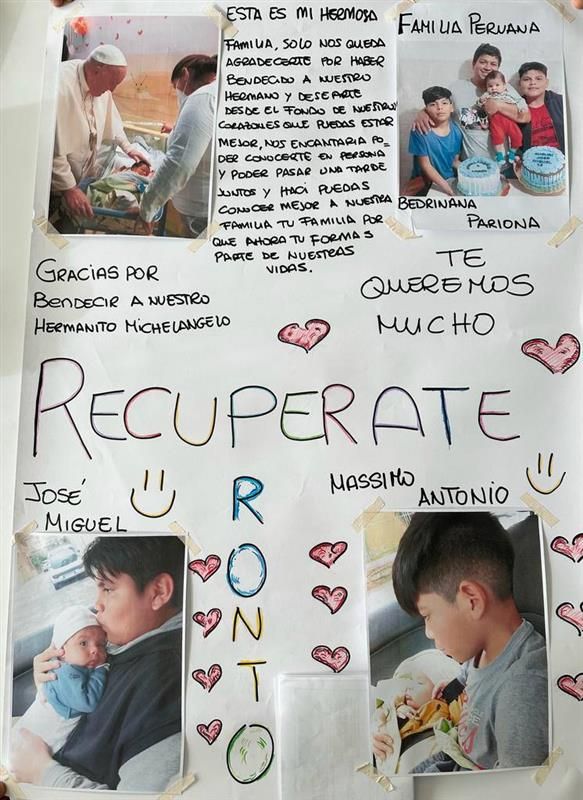 ESTA ES MI HERMOSA
FAMILIA, SOLO NOS QUEDA
AGRADECERTE POR HABER
BENDECIDO A NUESTRO
HERMANO Y DESEARTE
DESDE EL FONDO DE NUESTROS
CORAZONES QUE PUEDAS ESTAR
MEJOR, NOS ENCANTARIA PO=
DER CONOCERTE EN PERSONA
Y PODER PASAR UNA TARDE
JUNTOS Y HACI PUEDAS
CONOCER MEJOR A NUESTRA
FAMILIA TU FAMILIA POR
QUE AHORA TU FORMAS
PARTE DE NUESTRAS
VIDAS.
FAMILIA PERUANA
BEDRIÑANA
PARIONA
GRACIAS POR
BENDECIR A NUESTRO
HERMANITO MICHELANGELO
TE
QUEREMOS
MUCHO
RECUPERATE
PRONTO
JOSÉ
MIGUEL
MASSIMO
ANTONIO